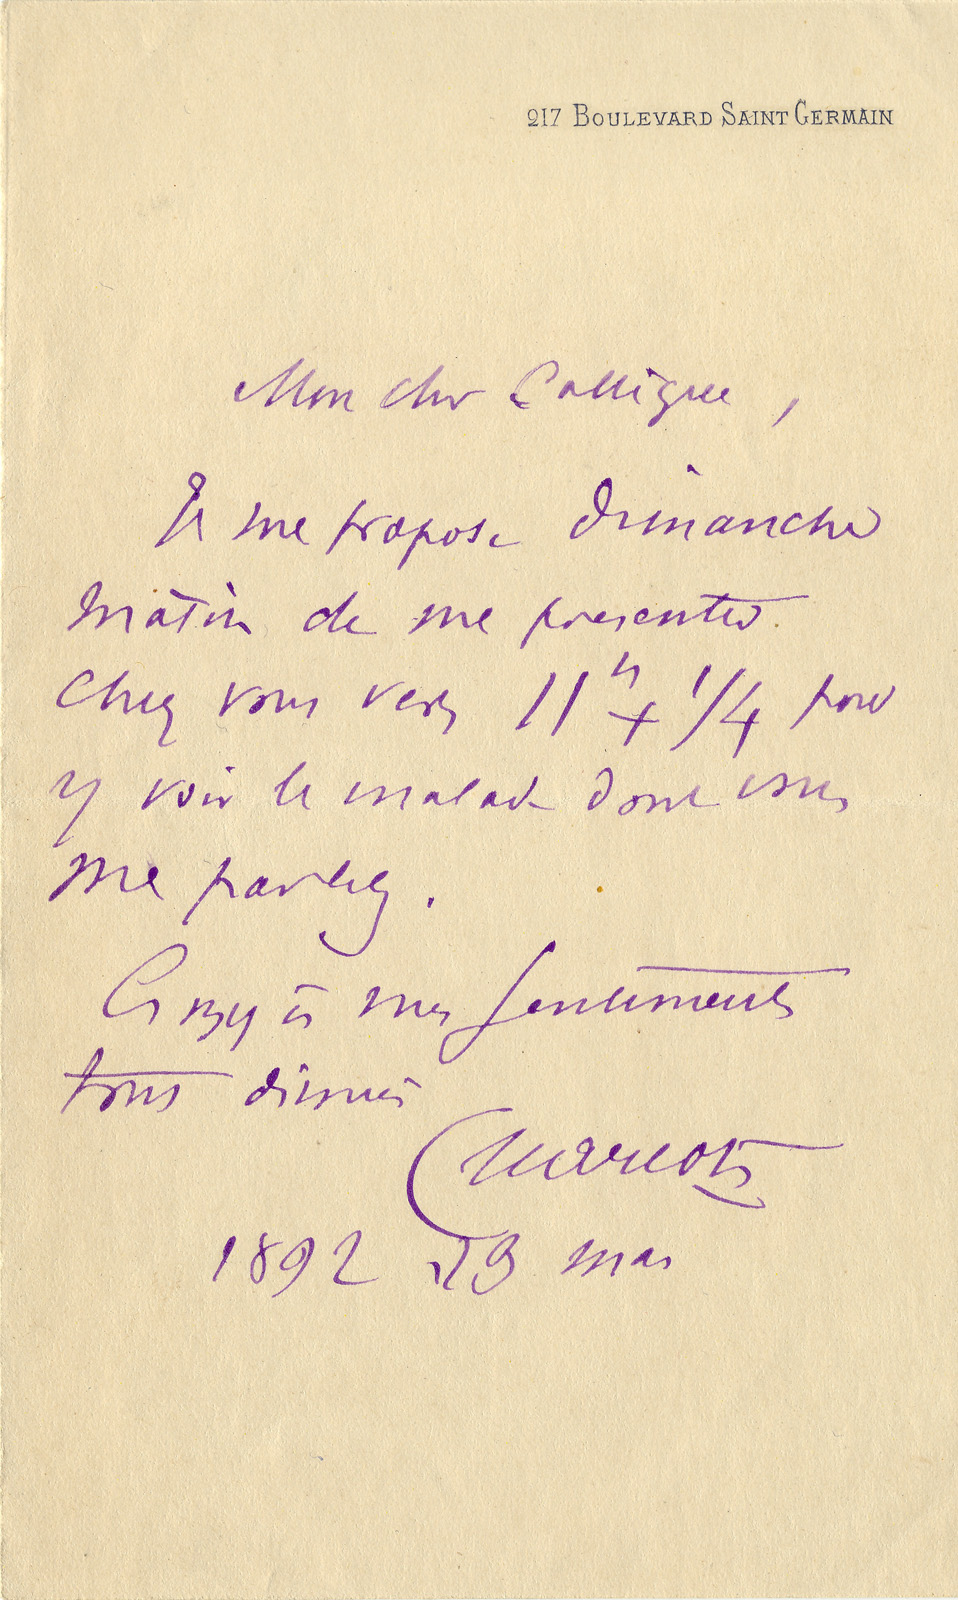 217 BOULEVARD SAINT GERMAIN
Mon cher Collègue,
Je me propose dimanche
matin de me presenter
chez vous vers 11h + 1/4 pour
y voir le malade dont vous
me parlez.
Croyez à mes sentiments
tous dévoués
Charcot
1892 23 mai